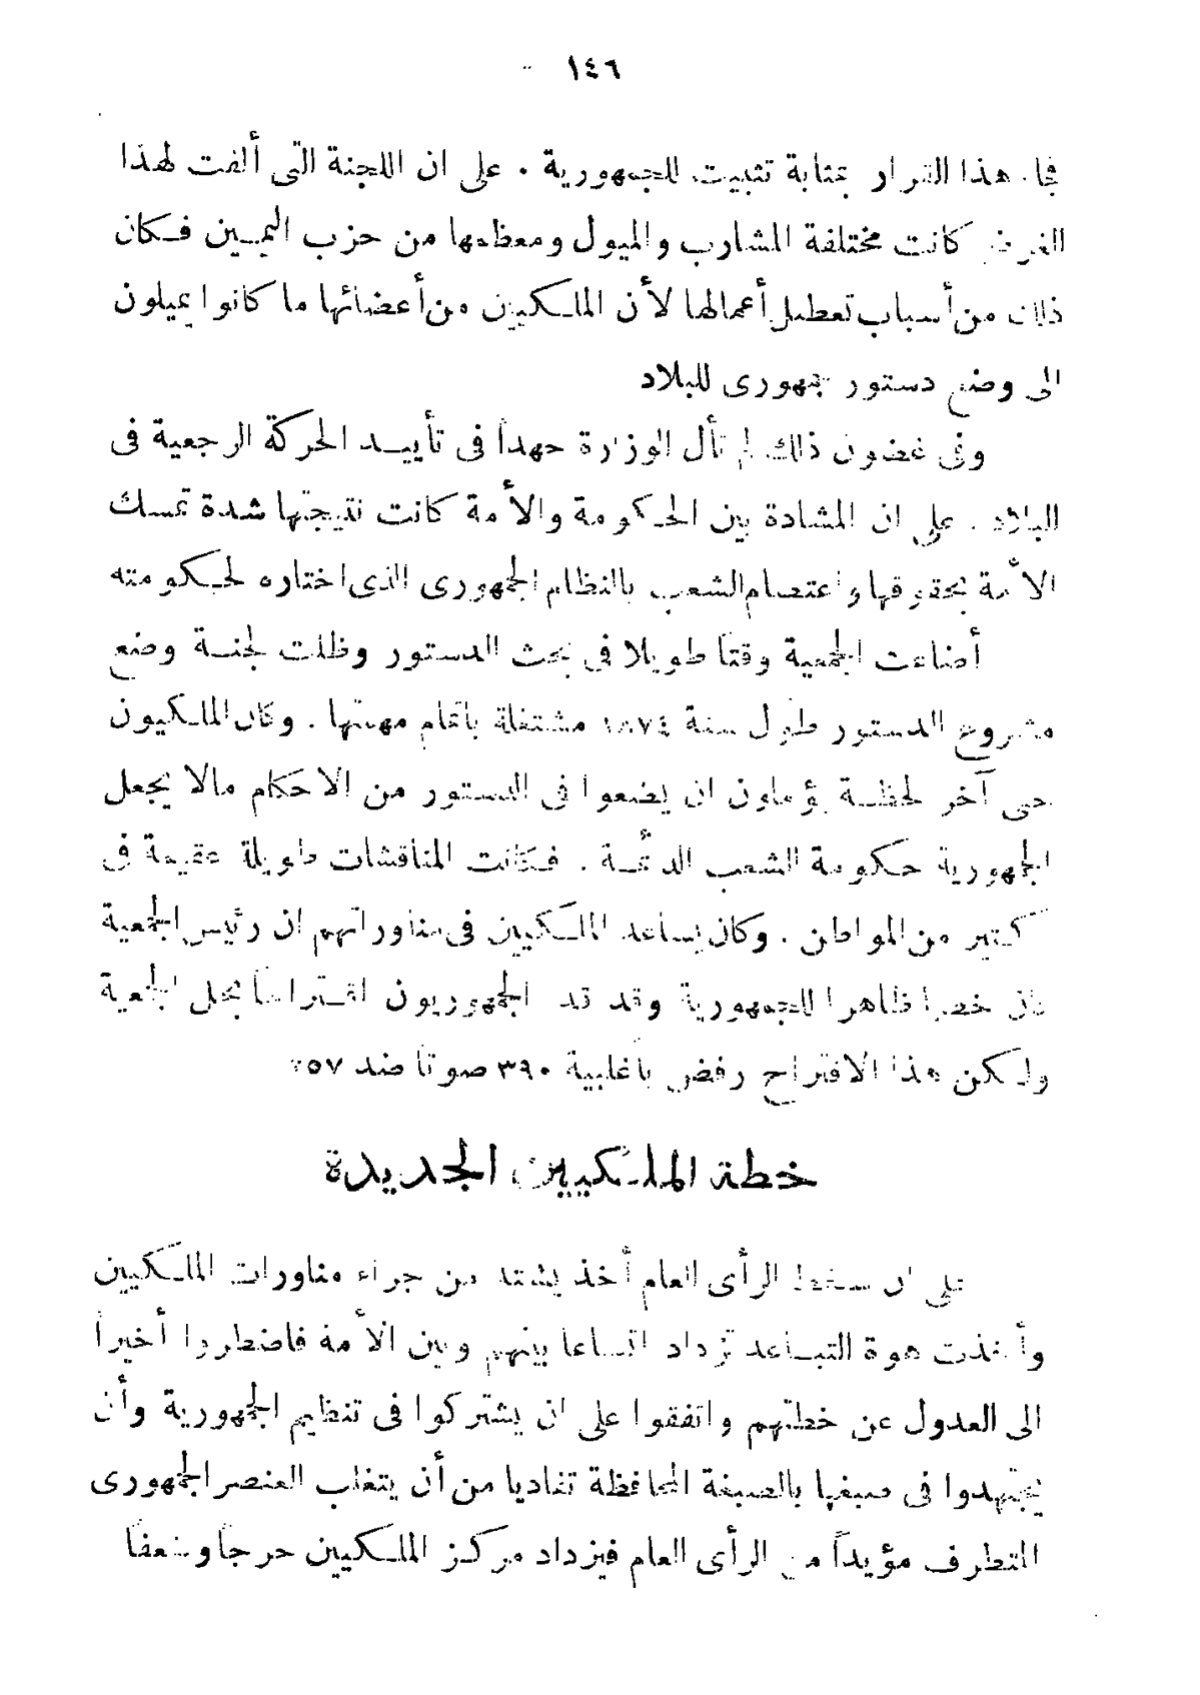 ١٤٦
فجاء هذا القرار بمثابة تثبيت للجمهورية . على ان اللجنة التى ألفت لهذا
الغرض كانت مختلفة المشارب والميول ومعظمها من حزب اليمين فكان
ذلك من أسباب تعطيل أعمالها لأن الملكيين من أعضائها ما كانوا يميلون
الى وضع دستور جمهورى للبلاد
وفى غضون ذلك لم تأل الوزارة جهداً فى تأييد الحركة الرجعية فى
البلاد . على ان المشادة بين الحكومة والأمة كانت نتيجتها شدة تمسك
الأمة بحقوقها واعتصام الشعب بالنظام الجمهورى الذى اختاره لحكومته
أضاعت الجمعية وقتاً طويلا فى بحث الدستور وظلت لجنة وضع
مشروع الدستور طول سنة ١٨٧٤ مشتغلة باتمام مهمتها . وكان الملكيون
حتى آخر لحظة يؤملون ان يضعوا فى الدستور من الاحكام مالا يجعل
الجمهورية حكومة الشعب الدائمة . فكانت المناقشات طويلة عقيمة فى
كثير من المواطن . وكان يساعد الملكيين فى مناوراتهم ان رئيس الجمعية
كان خصما ظاهرا للجمهورية وقد قدم الجمهوريون اقتراحاً بحل الجمعية
ولكن هذا الاقتراح رفض باغلبية ٣٩٠ صوتاً ضد
خطة الملكيين الجديدة
على ان سخط الرأى العام أخذ يشتد من جراء مناورات الملكيين
وأخذت هوة التباعد تزداد اتساعا بينهم وبين الأمة فاضطروا أخيراً
الى العدول عن خطتهم واتفقوا على ان يشتركوا فى تنظيم الجمهورية وأن
يجتهدوا فى صبغها بالصبغة المحافظة تفاديا من أن يتغلب العنصر الجمهورى
المتطرف مؤيداً من الرأى العام فيزداد مركز الملكيين حرجاً وضعفاً